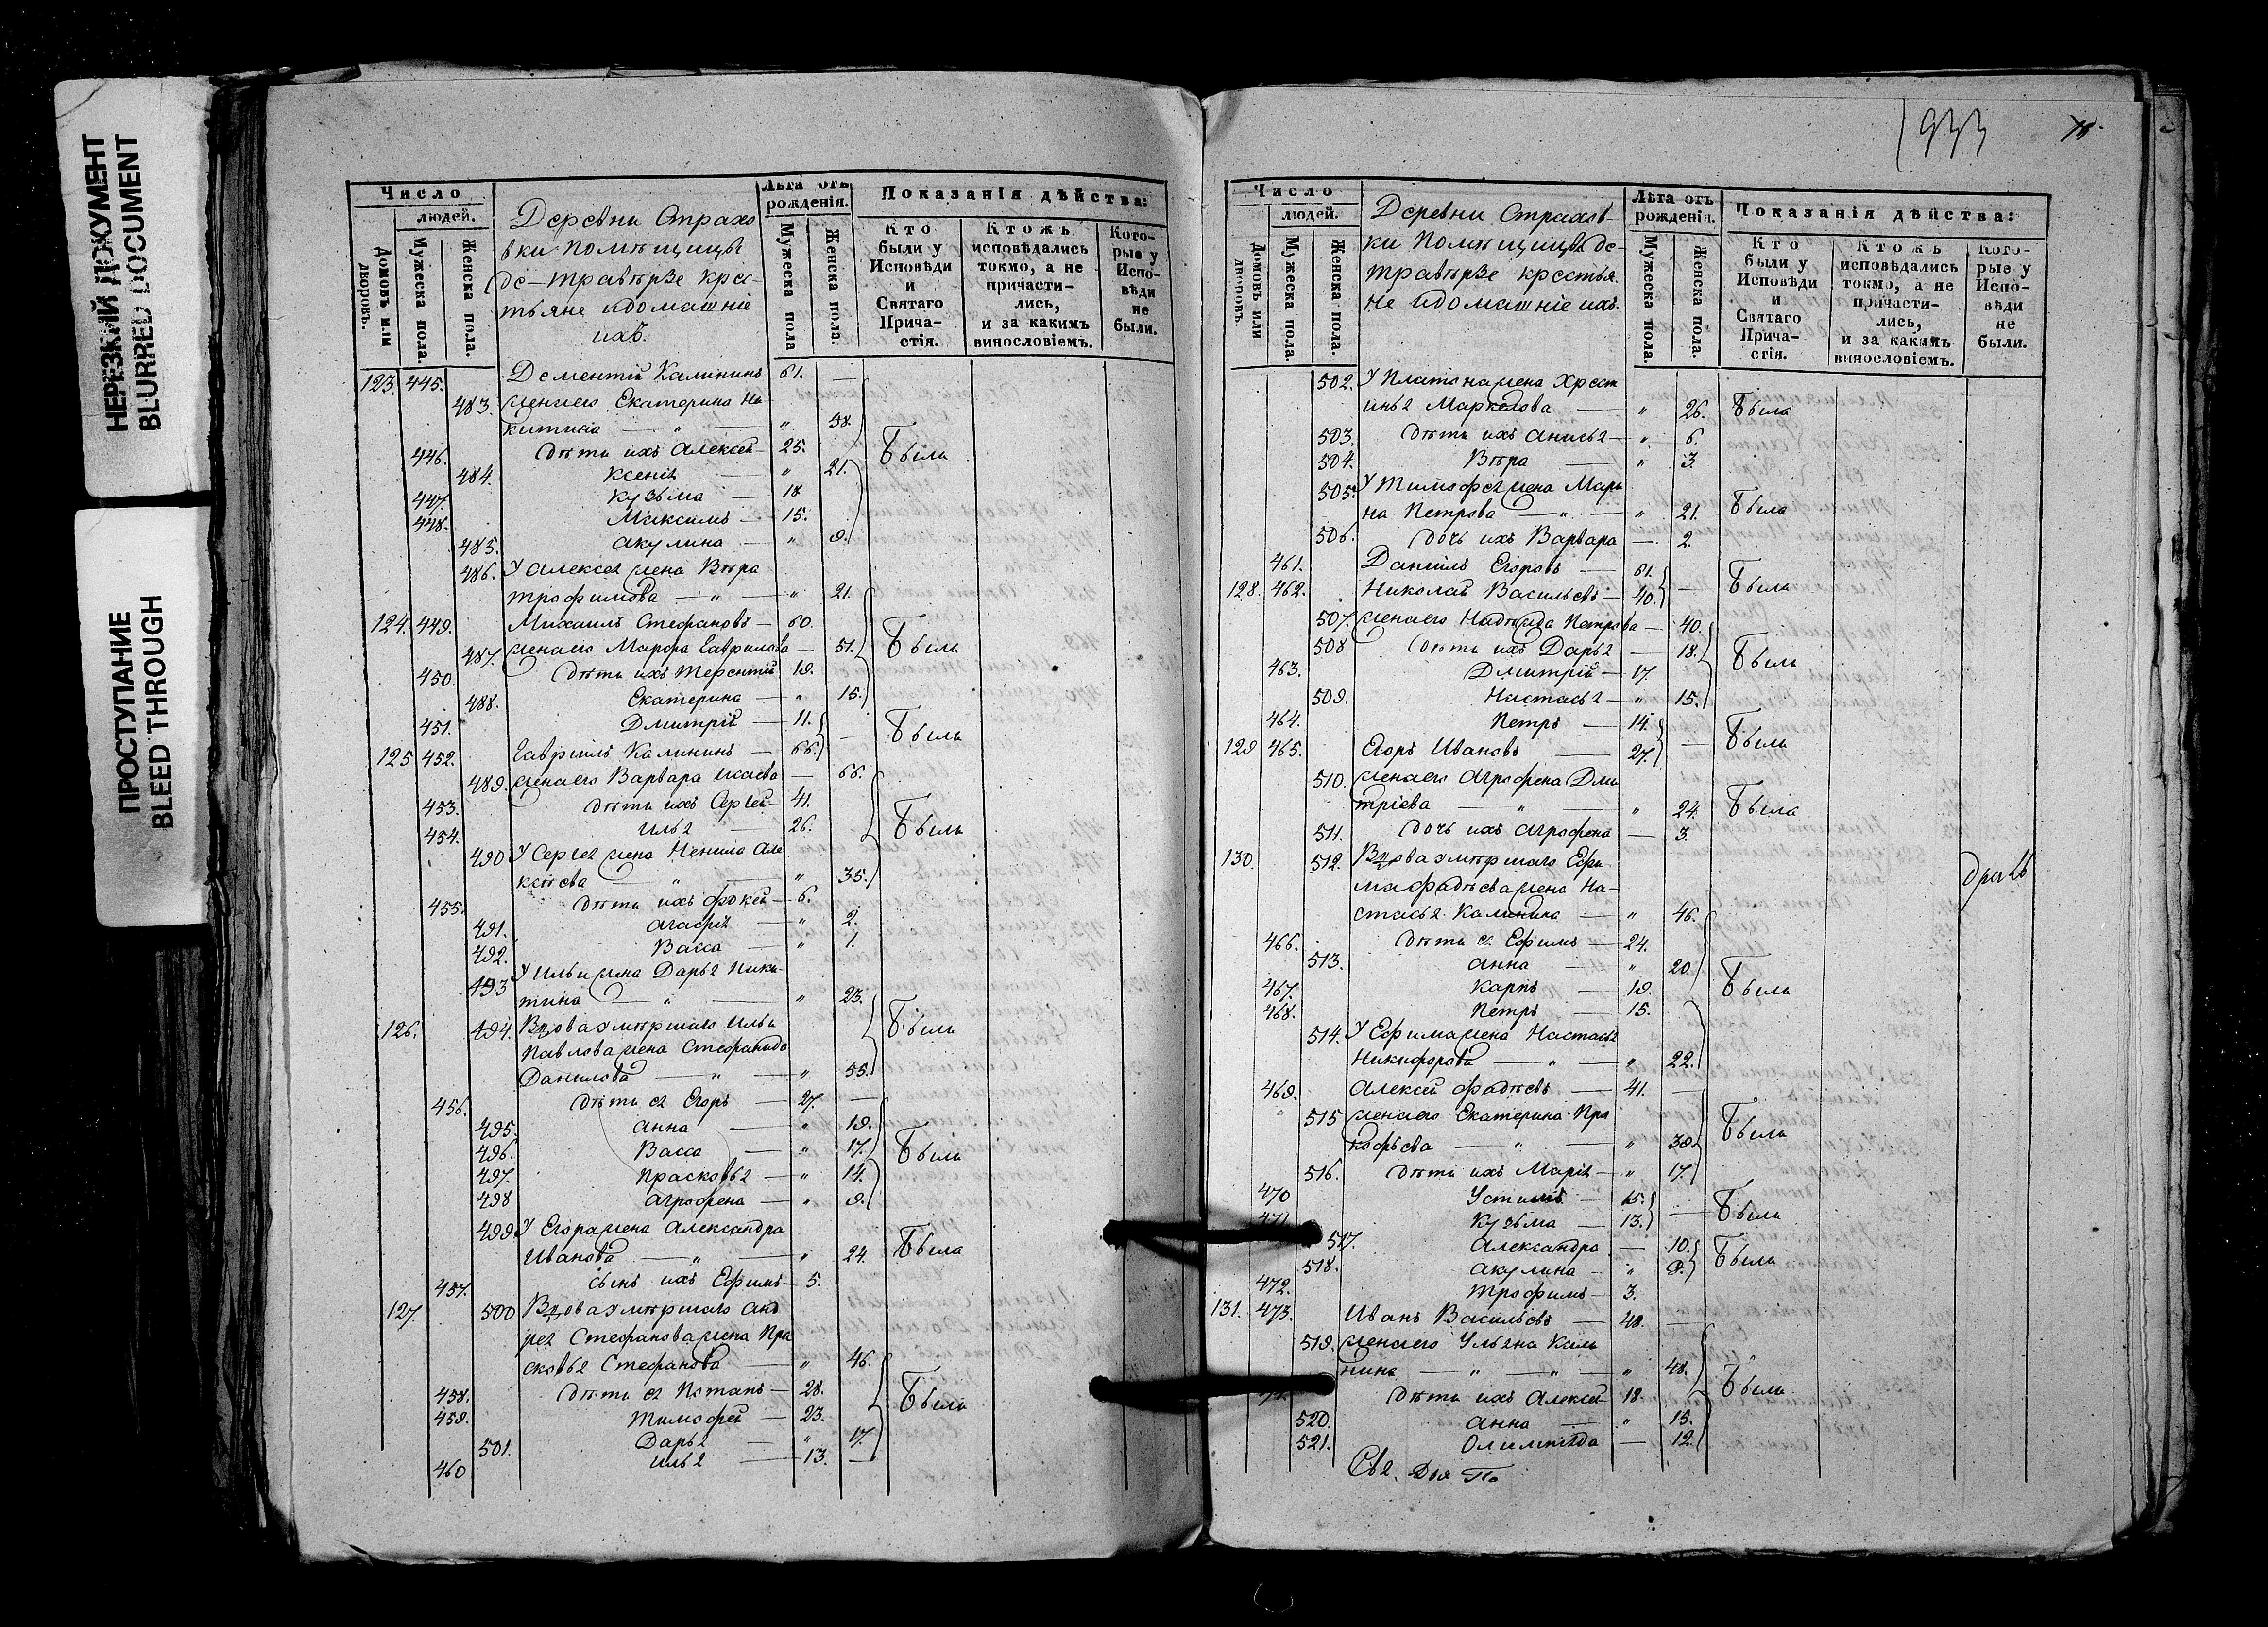 НЕРЕЗКИЙ ДОКУМЕНТ
BLURRED DOCUMENT
ПРОСТУПАНИЕ
BLEED THROUGH
Число
людей.
Домовъ или дворовъ.
Мужеска пола.
Женска пола.
Деревни Страхо
вки помѣщицы
де-траверзе крес-
тьяне идомашніе
ихъ.
Лѣта отъ рожденія.
Мужеска пола
Женска пола.
Показанія дѣйства:
Кто были у Исповѣди и Святаго Прича-стія.
Ктожъ исповѣдались токмо, а не причасти-лись, и за какимъ винословіемъ.
Кото-рые у Испо-вѣди не были.
123. 445. Дементій Калининъ 61. —
483. жена его Екатерина Ни
китина — " — " 58.
446. дѣти ихъ Алексей — 25. Были
484. Ксенія — " 21.
447. Кузьма — 18.
448. Максимъ — 15.
485. Акулина — " 9.
486. У Алексея жена Вѣра
Трофимова — " — " 21.
124. 449. Михаилъ Стефановъ — 60.
487. жена его Марфа Гаврилова — 51. Были
450. дѣти ихъ Терентій 19.
488. Екатерина — " 15.
451. Дмитрій — 11. Были
125 452. Гавріилъ Калининъ — 66. —
489. жена его Варвара Исаева — 66.
453. дѣти ихъ Сергей — 41.
454. Илья — 26. Были
490 У Сергея жена Ненила Але
ксѣева — " — " 35.
455. дѣти ихъ Фокей — 6.
491. Агафія — " 2.
492. Васса — " 1.
493 У Ильи жена Дарья Ники-
тина — " — " 23.
126. 494. Вдова умѣршаго Ильи Были
Павлова жена Стефанида
Данилова — " — " 55.
456. дѣти ея Егоръ — 27. —
495. Анна — " 19.
496. Васса — " 17. Были
497. Прасковья — " 14.
498 Агрофена — " 9.
499 У Егора жена Александра
Иванова — " — " 24. Была
457. сынъ ихъ Ефимъ — 5.
127. 500 Вдова умѣршаго Анд
рея Стефанова жена Пра
сковья Стефанова — " 46.
458. дѣти ея Потапъ — 28. Были
459. Тимофей — 23.
501. Дарья — " 17.
460 Илья — 13. —
933
Число
людей.
Домовъ или дворовъ.
Мужеска пола.
Женска пола.
Деревни Страхов-
ки помѣщицы де-
траверзе крестья-
не идомашніе ихъ.
Лѣта отъ рожденія.
Мужеска пола.
Женска пола.
Показанія дѣйства:
Кто были у Исповѣди и Святаго Прича-стія.
Ктожъ исповѣдались токмо, а не причасти-лись, и за какимъ винословіемъ.
Кото-рые у Испо-вѣди не были.
502. У Платона жена Христ
инья Маркелова — " 26. Была
503. дѣти ихъ Анисья — " 6.
504. Вѣра — " 3.
505. У Тимофея жена Мари
на Петрова — " — " 21. Была
506. дочь ихъ Варвара — 2.
461. Даніилъ Егоровъ — 61.
128. 462. Николай Васильевъ — 40. — Были
507. жена его Надѣжда Петрова — 40.
508 дѣти ихъ Дарья — 18.
463. Дмитрій — 17. Были
509. Настасья — " 15.
464. Петръ — 14.
129 465. Егоръ Ивановъ — 27. — Были
510. жена его Агрофена Дми
тріева — " — " 24. Была
511. дочь ихъ Агрофена — 3.
130. 512. Вдова умѣршаго Ефи
ма Фадѣева жена На-
стасья Калинина — " 46.
466. дѣти ея Ефимъ — 24.
513. Анна — " 20.
467. Карпъ — 19. Были
468. Петръ — 15.
514. У Ефима жена Настасья
Никифорова — " — " 22.
469. Алексей Фадѣевъ — 41. —
515 жена его Екатерина Про
кофьева — " — " 39. Были
516. дѣти ихъ Марія — " 17.
470 Устинъ — 15.
471. Кузьма — 13. — Были
517. Александра — 10. Были
518. Акулина — " 9.
472. Трофимъ — 3.
131. 473. Иванъ Васильевъ — 48. —
519. жена его Ульяна Кали
нина — " — " — " 48.
дѣти ихъ Алексей — 18. Были
520. Анна — " 15.
521. Олимпіада — 12.